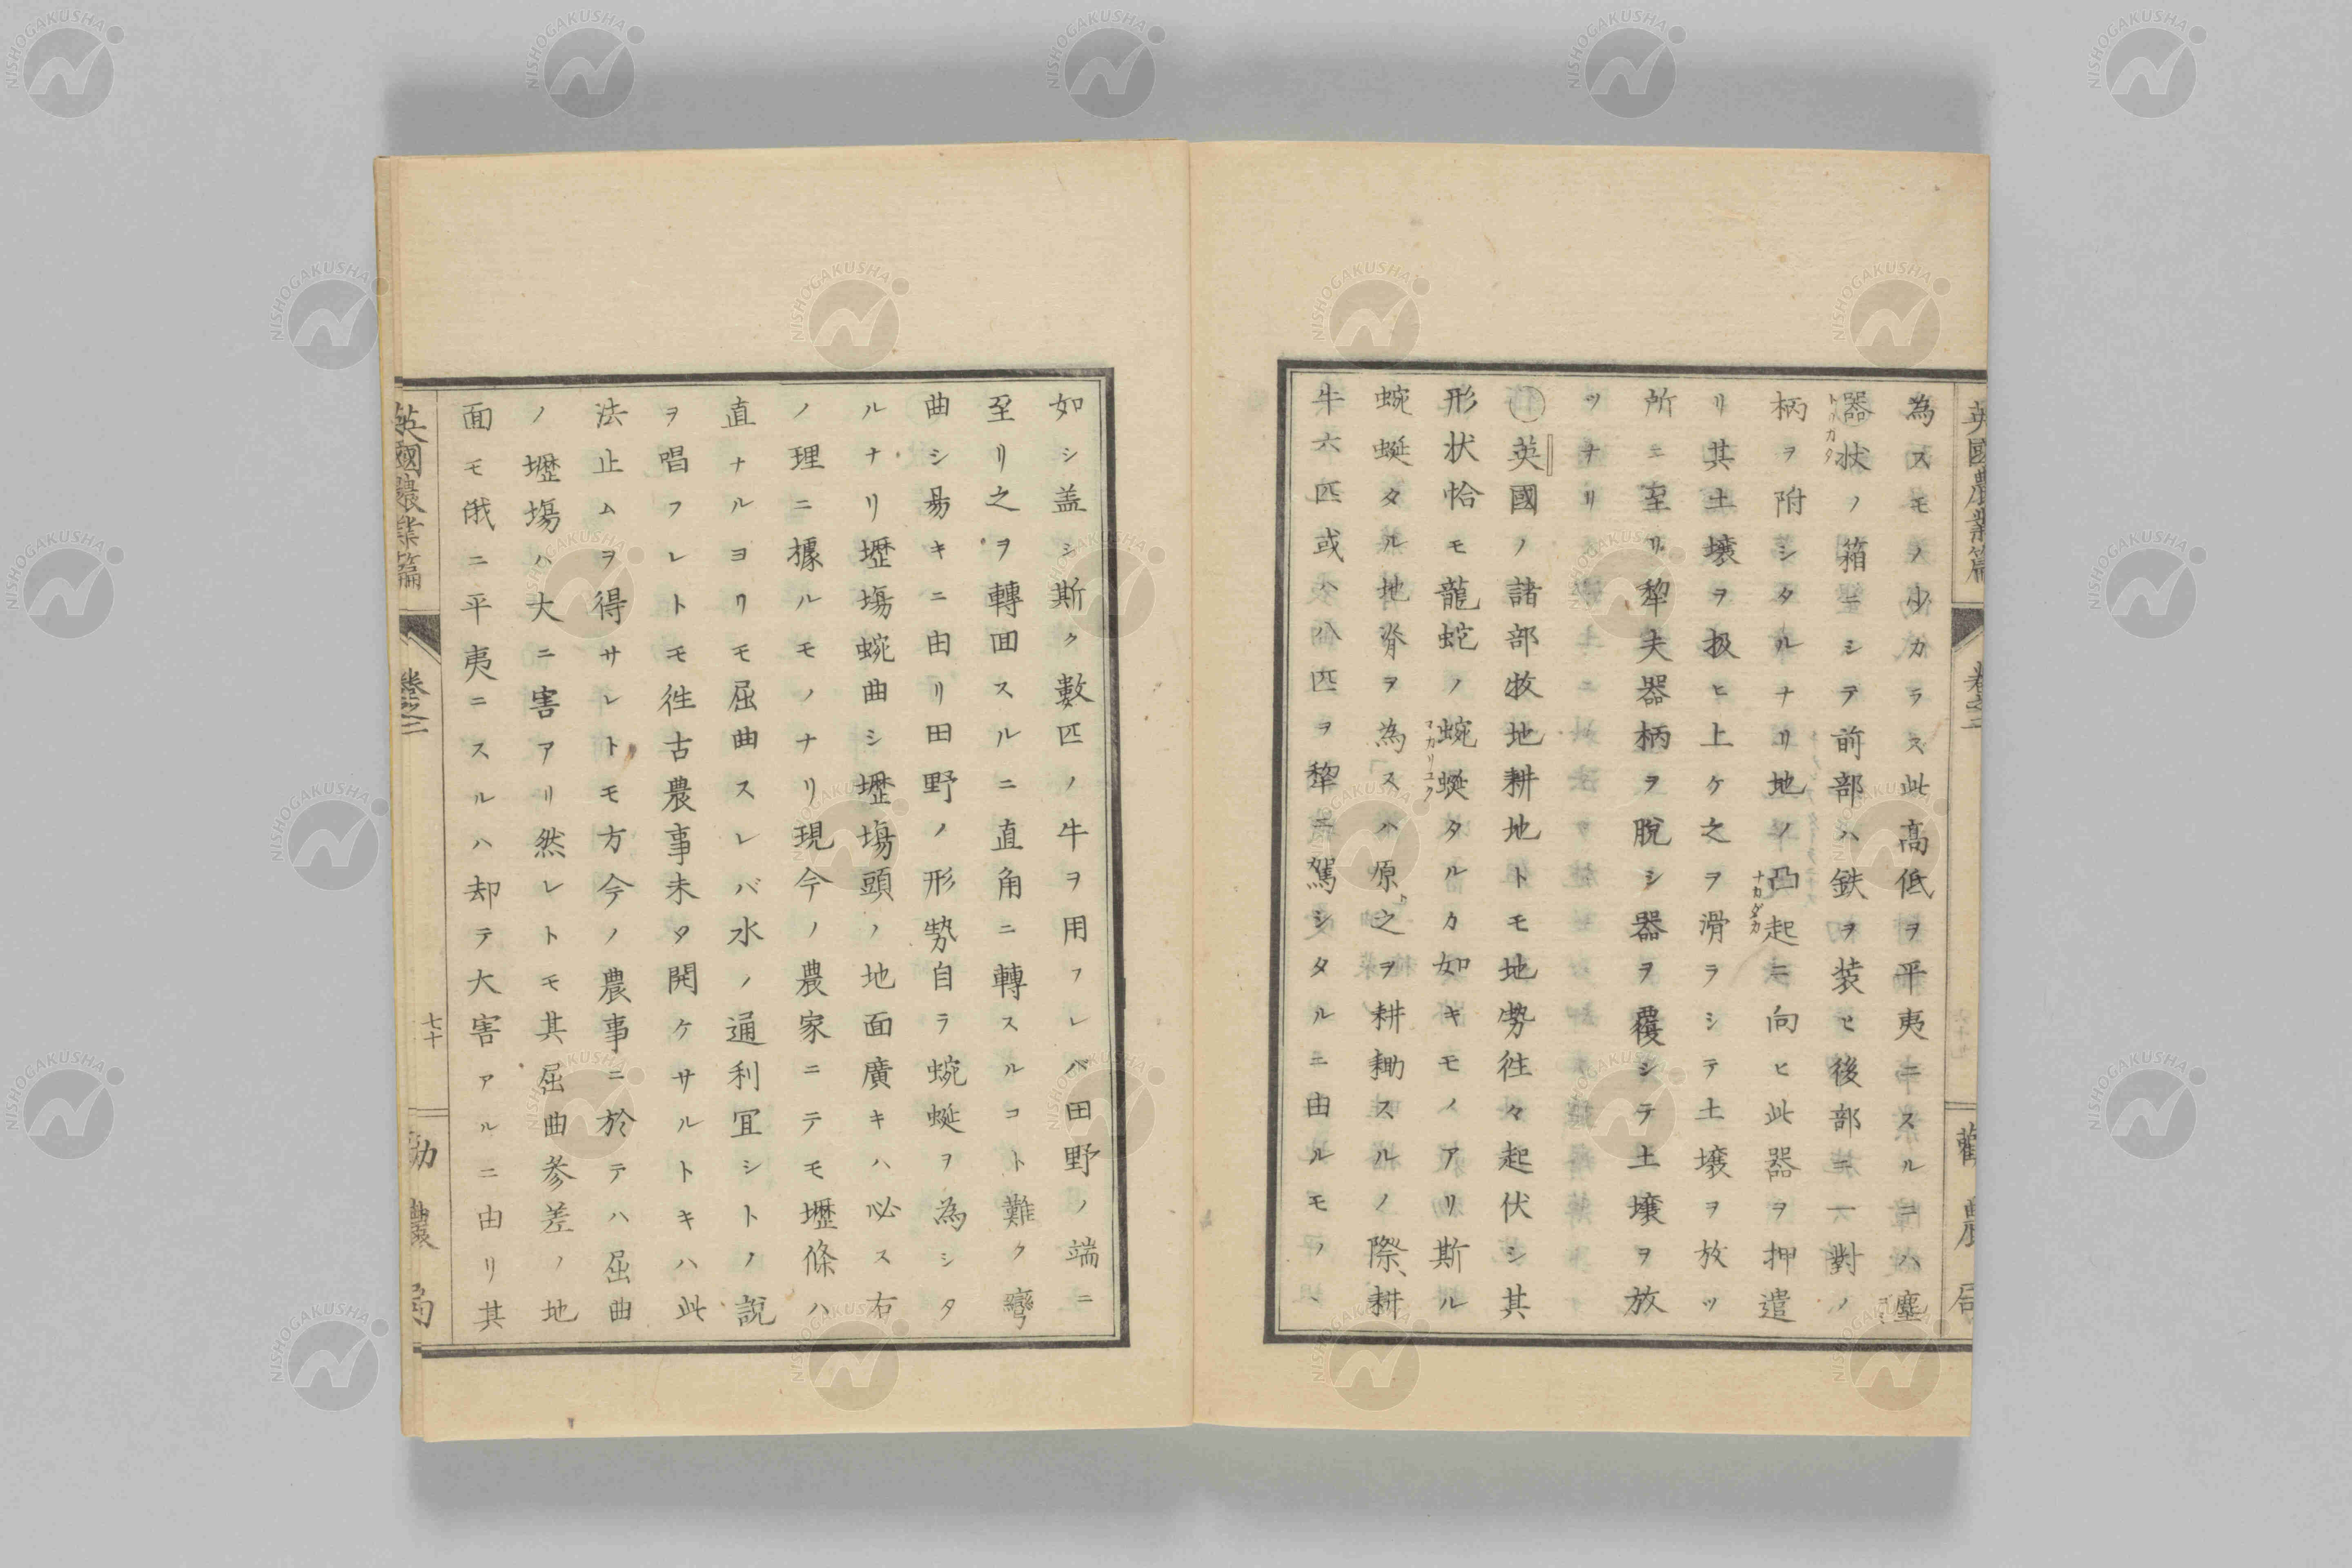 為スモノ少カラス此高低ヲ平夷ニスルニハ塵
器状ノ箱ニシテ前部ハ鉄ヲ装ヒ後部ニ一對ノ
トリカタ
柄ヲ附シタルナリ地ノ凸起ニ向ヒ此器ヲ押遣
ナカダカ
リ其土壌ヲ扱ヒ上ケ之ヲ滑ラシテ土壌ヲ放ツ
所ニ至リ犂夫器柄ヲ脱シ器ヲ覆シテ土壌ヲ放
ツナリ
〇英國ノ諸部牧地耕地トモ地勢徃々起伏シ其
形状恰モ龍蛇ノ蜿蜒タルカ如キモノアリ斯ル
マカリユク
蜿蜒タル地脊ヲ為スハ原之ヲ耕耡スルノ際、耕
牛六匹或ハ八匹ヲ犂ニ駕シタルニ由ルモノヽ
英國農業篇
卷之二
勸農局
如シ盖シ斯ク數匹ノ牛ヲ用フレバ田野ノ端ニ
至リ之ヲ轉囬スルニ直角ニ轉スルコト難ク彎
曲シ易キニ由リ田野ノ形勢自ラ蜿蜒ヲ為シタ
ルナリ壢塲蜿曲シ壢塲頭ノ地面廣キハ必ス右
ノ理ニ據ルモノナリ現今ノ農家ニテモ壢條ハ
直ナルヨリモ屈曲スレバ水ノ通利冝シトノ説
ヲ唱フレトモ徃古農事未タ開ケサルトキハ此
法止ムヲ得サレトモ方今ノ農事ニ於テハ屈曲
ノ壢塲ハ大ニ害アリ然レトモ其屈曲参差ノ地
面モ俄ニ平夷ニスルハ却テ大害アルニ由リ其
英國農業篇
卷之二
七十
勸農局
NISHOGAKUSHA